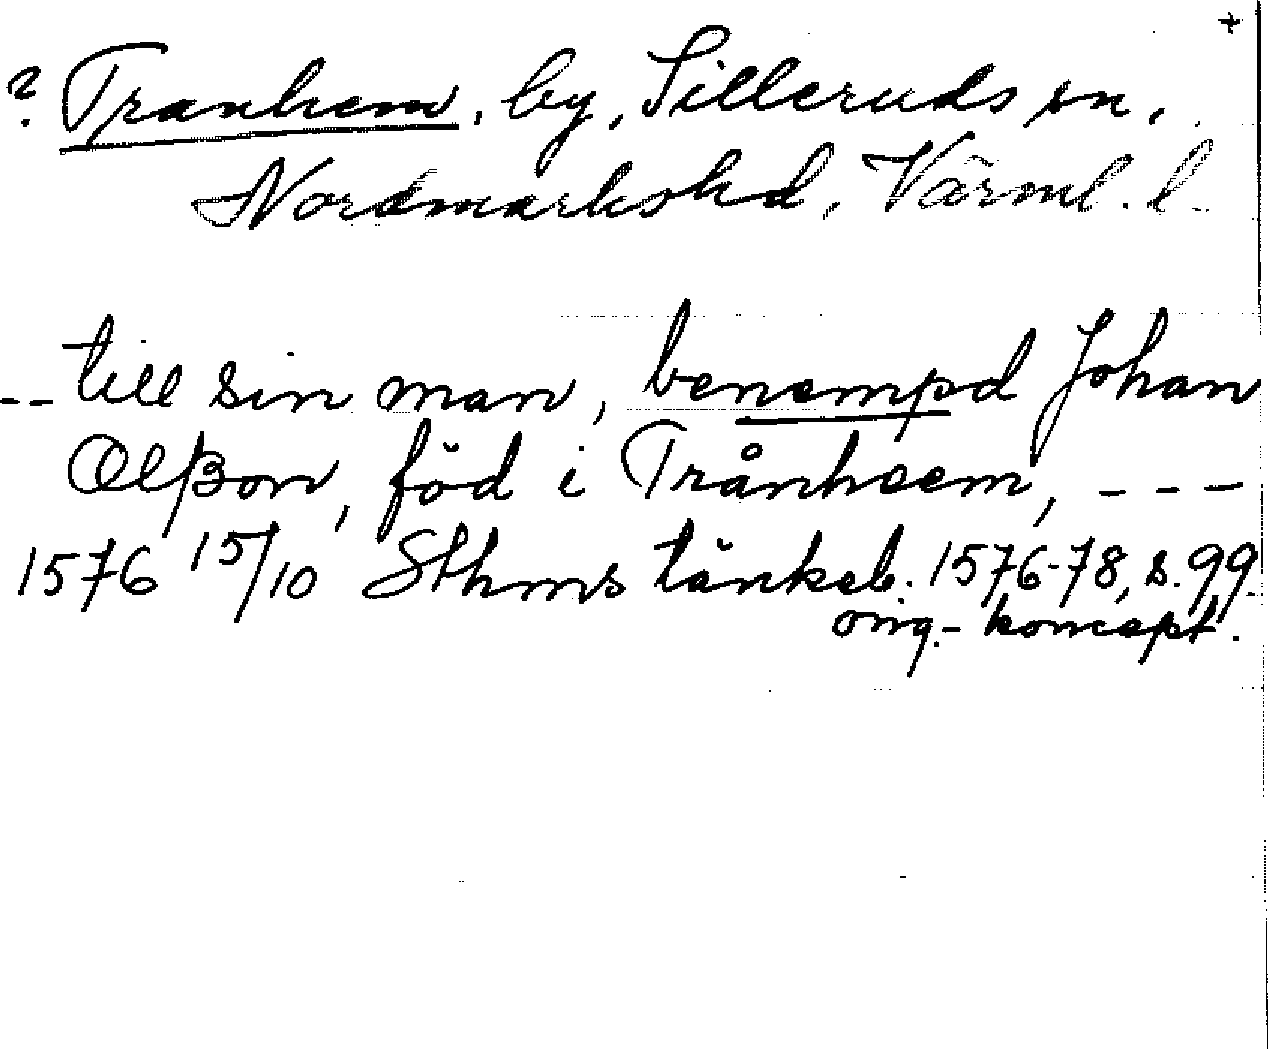 +
? Tranhem, by, Silleruds sn,
Nordmarkshd, Värml. l.
-- till sin man, benempd Johan
Olßon, föd i Trånheem, ---
1576 15/10 Sthms tänkeb. 1576-78, s. 99
orig.-koncept.